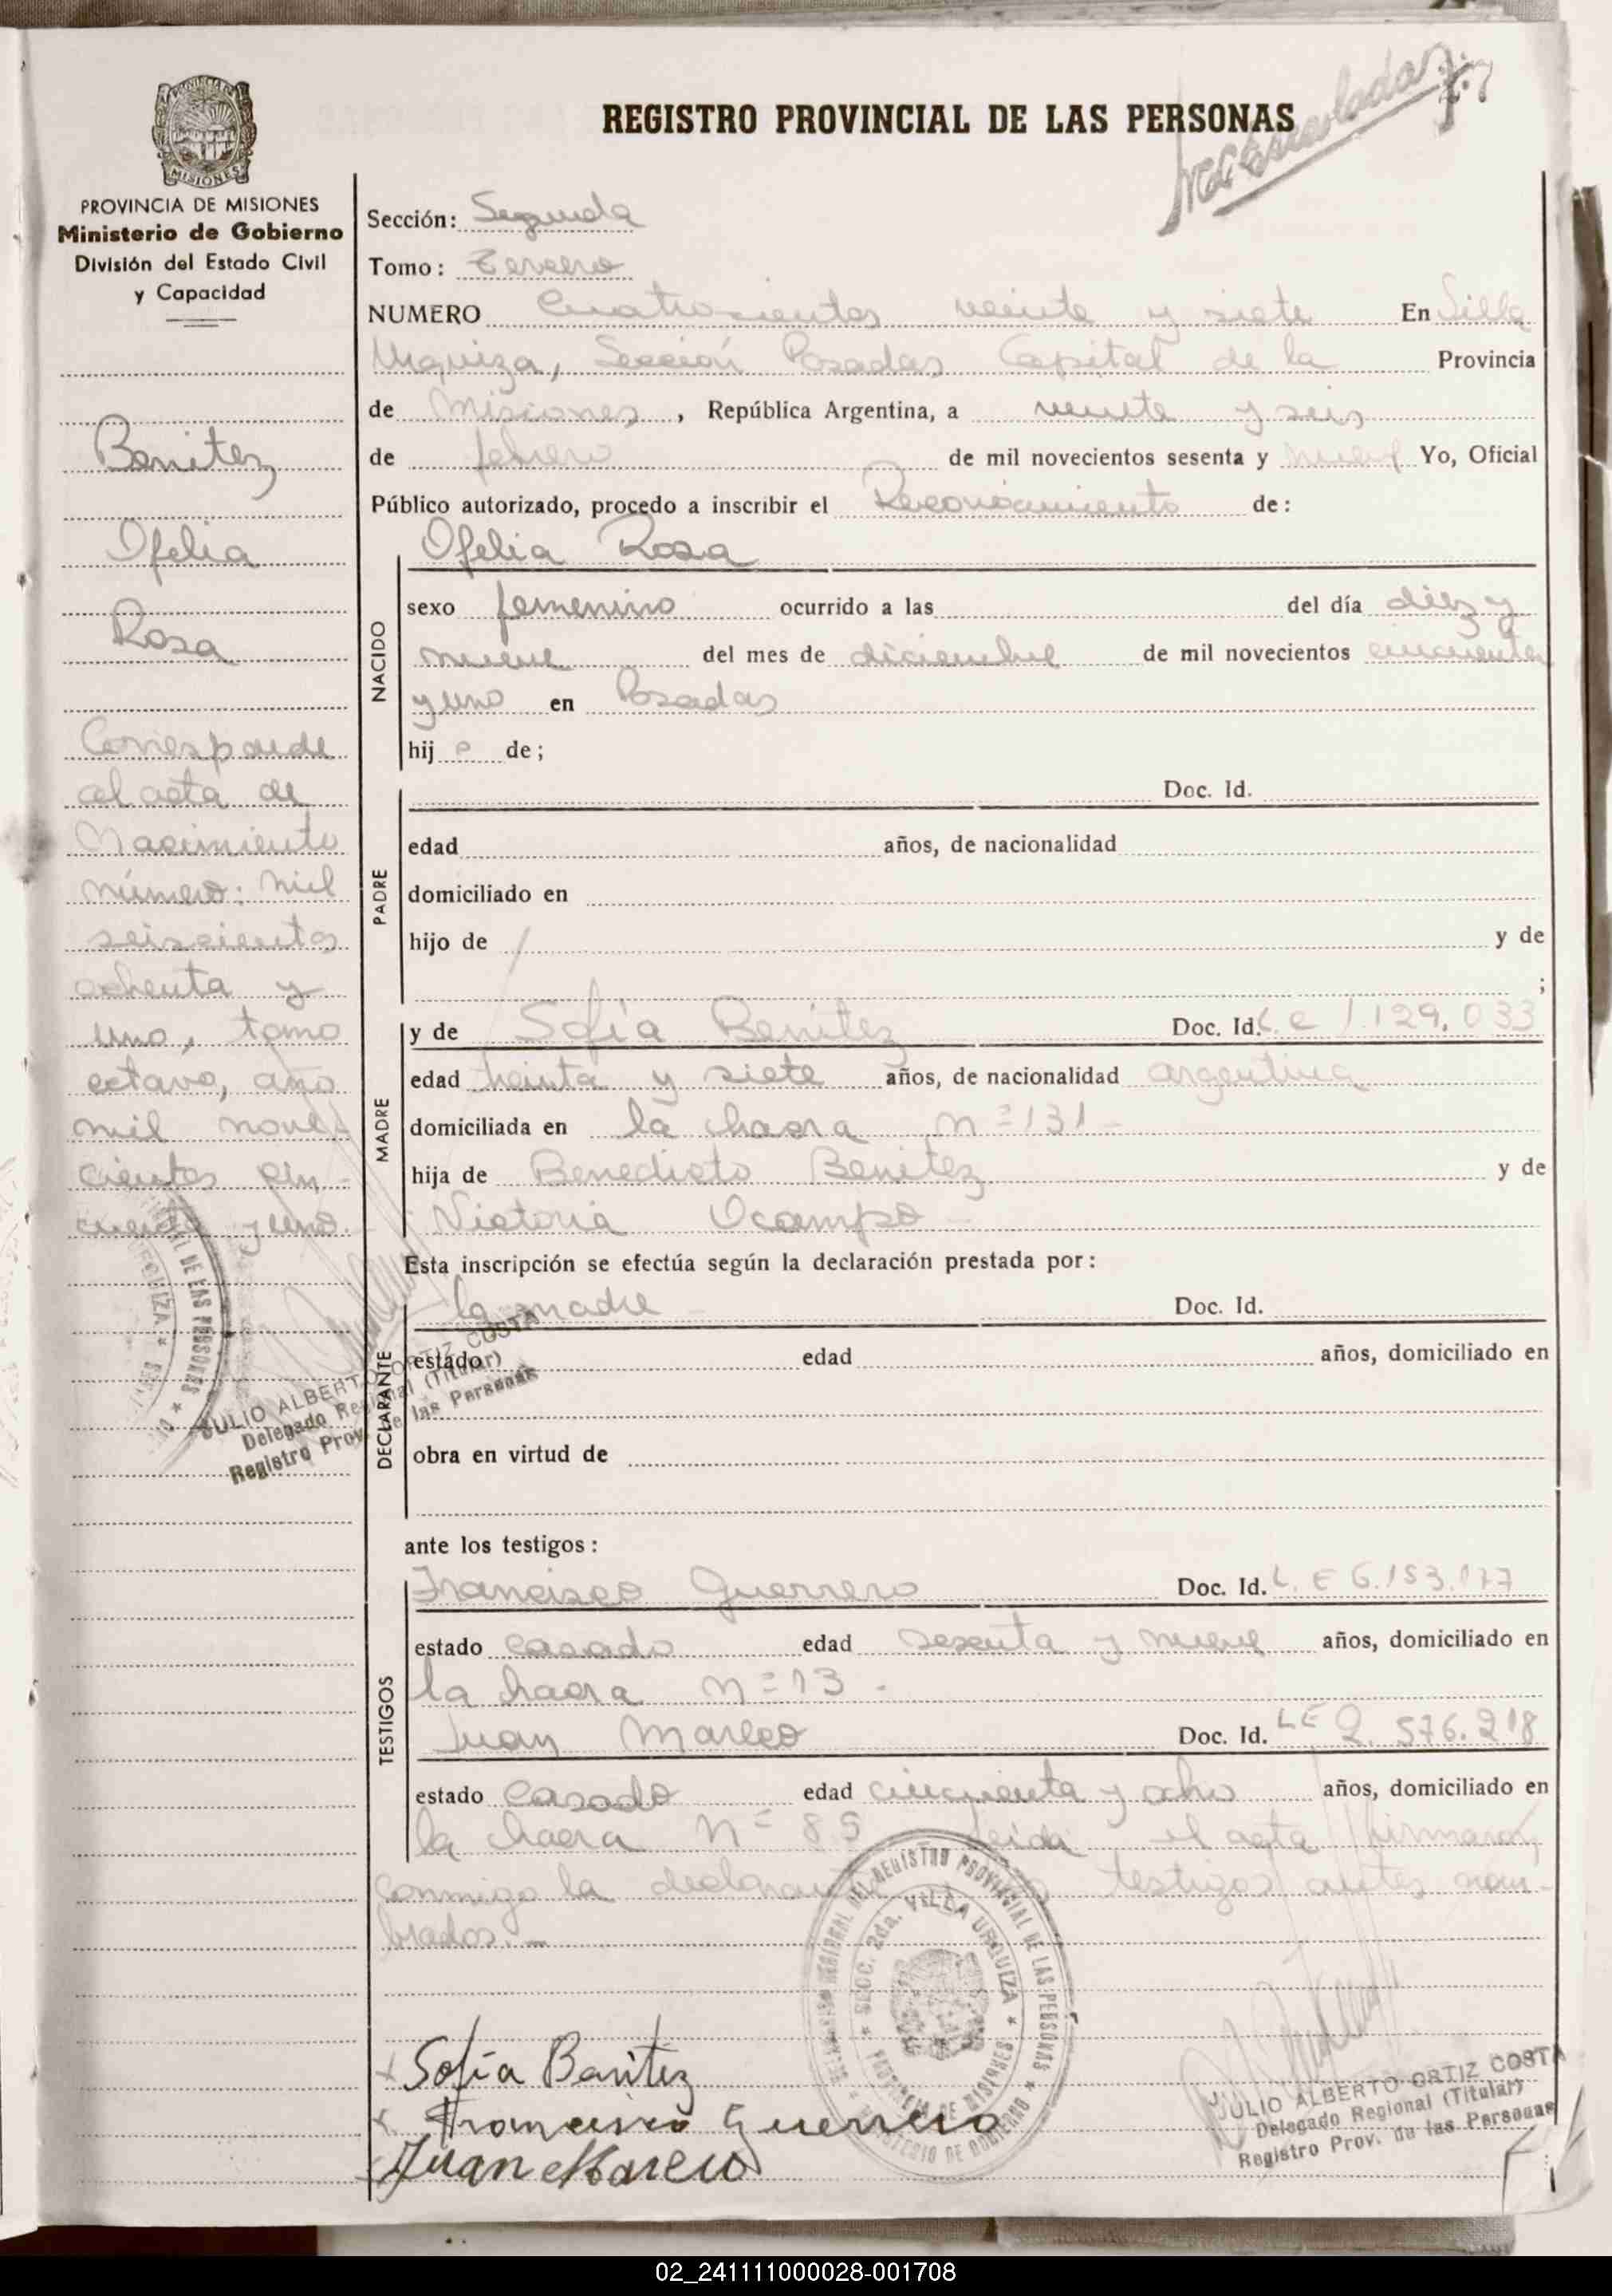 REGISTRO PROVINCIAL DE LAS PERSONAS
MISIONES
PROVINCIA DE MISIONES
Ministerio de Gobierno
División del Estado Civil
y Capacidad
Benitez
Ofelia
Rosa
Corresponde
al acta de
Nacimiento
número: mil
seiscientos
ochenta y
uno, tomo
octavo, año
mil nove
cientos cin-
cuenta y uno.
JULIO ALBERTO ORTIZ COSTA
Delegado Regional (Titular)
Registro Prov. de las Personas
Sección: Segunda
Tomo: Tercero
NUMERO Cuatrocientos veinte y siete En Villa
Urquiza, Sección Posadas Capital de la Provincia
de Misiones, República Argentina, a veinte y seis
de febrero de mil novecientos sesenta y nueve Yo, Oficial
Público autorizado, procedo a inscribir el Reconocimiento de:
NACIDO
Ofelia Rosa
sexo femenino ocurrido a las del día diez y
nueve del mes de diciembre de mil novecientos cincuenta
y uno en Posadas
hij a de;
PADRE
Doc. Id.
edad años, de nacionalidad
domiciliado en
hijo de / y de
;
MADRE
y de Sofía Benitez Doc. Id. L. C 1.129.033
edad treinta y siete años, de nacionalidad argentina
domiciliada en la chacra n=131-
hija de Benedicto Benitez y de
Victoria Ocampo -
Esta inscripción se efectúa según la declaración prestada por:
DECLARANTE
la madre - Doc. Id.
estado edad años, domiciliado en
obra en virtud de
ante los testigos:
TESTIGOS
Francisco Guerrero Doc. Id. L. E 6.153.177
estado casado edad sesenta y nueve años, domiciliado en
la chacra n=13 -
Juan Marco Doc. Id. LE 2.576.218
estado casado edad cincuenta y ocho años, domiciliado en
la chacra N= 85 leida el acta firmaron,
conmigo la declarante testigos antes nom-
brados.-
Sofía Banitez
Francisco Guerrero
Juan Marco
SECC. 2da. VILLA URQUIZA
PROVINCIA DE MISIONES
REGIONAL DEL REGISTRO PROVINCIAL DE LAS PERSONAS
MINISTERIO DE GOBIERNO
JULIO ALBERTO ORTIZ COSTA
Delegado Regional (Titular)
Registro Prov. de las Personas
02_241111000028-001708